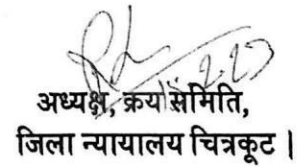 अध्यक्ष, क्रय समिति,
जिला न्यायालय चित्रकूट |